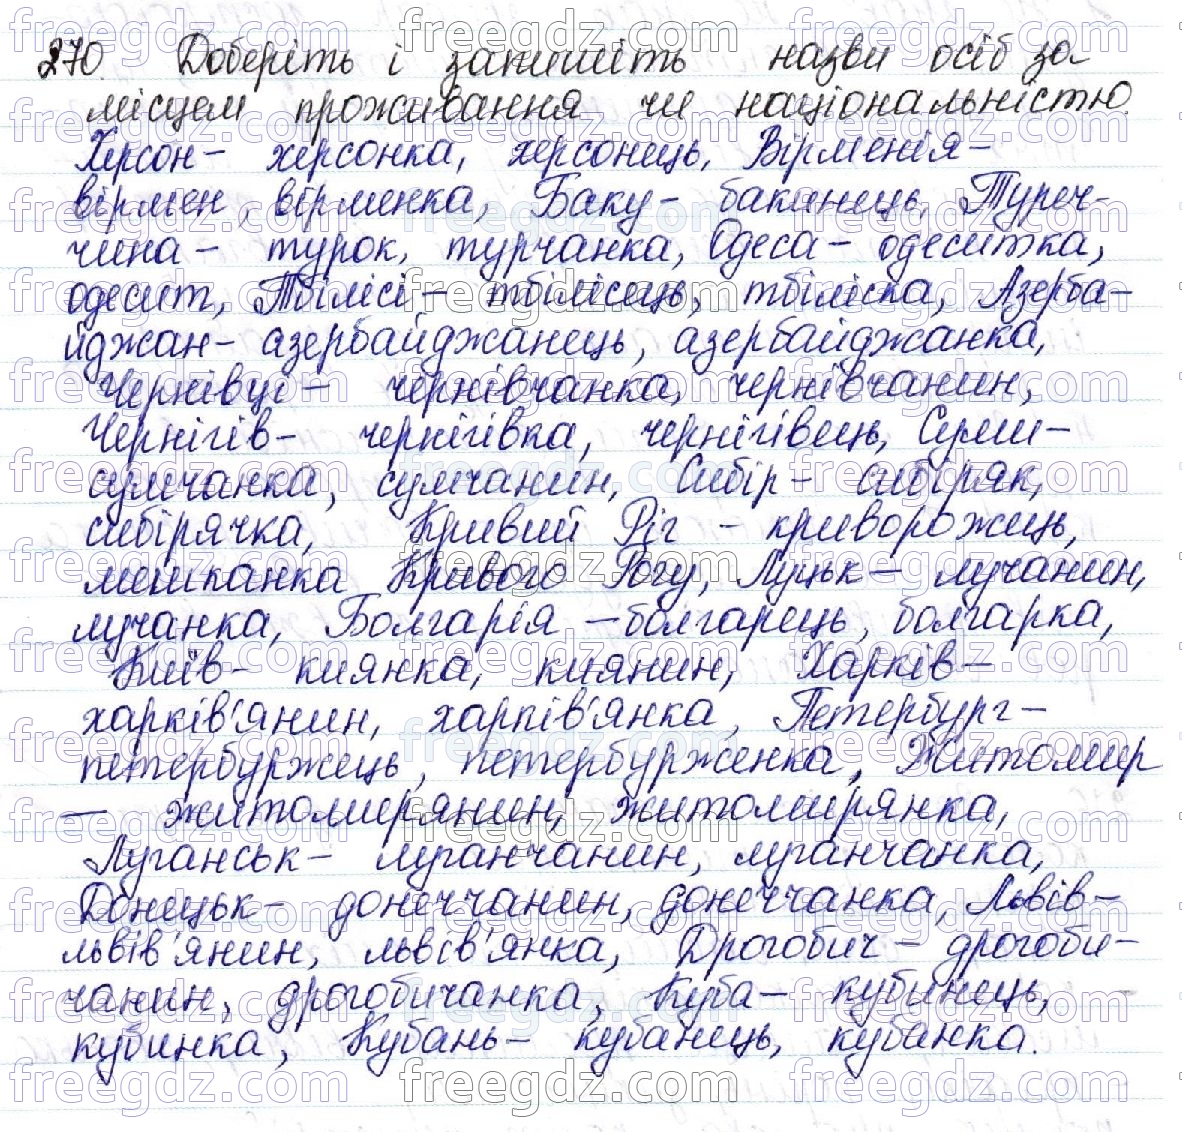 270. Доберіть і запишіть назви осіб за
місцем проживання чи національністю.
Херсон – херсонка, херсонець, Вірменія –
вірмен, вірменка, Баку – баканець, Туреч-
чина – турок, турчанка, Одеса – одеситка,
одесит, Тбілісі – тбілісець, тбіліска, Азерба-
йджан – азербайджанець, азербайджанка,
Чернівці – чернівчанка, чернівчанин,
Чернігів – чернігівка, чернігівець, Суми –
сумчанка, сумчанин, Сибір – сибіряк,
сибірячка, Кривий Ріг – криворожець,
мешканка Кривого Рогу, Луцьк – лучанин,
лучанка, Болгарія – болгарець, болгарка,
Київ – киянка, киянин, Харків –
харків'янин, харків'янка, Петербург –
петербуржець, петербурженка, Житомир
– житомирянин, житомирянка,
Луганськ – луганчанин, луганчанка,
Донецьк – донеччанин, донеччанка, Львів –
львів'янин, львів'янка, Дрогобич – дрогоби-
чанин, дрогобичанка, Куба – кубинець,
кубинка, Кубань – кубанець, кубанка.